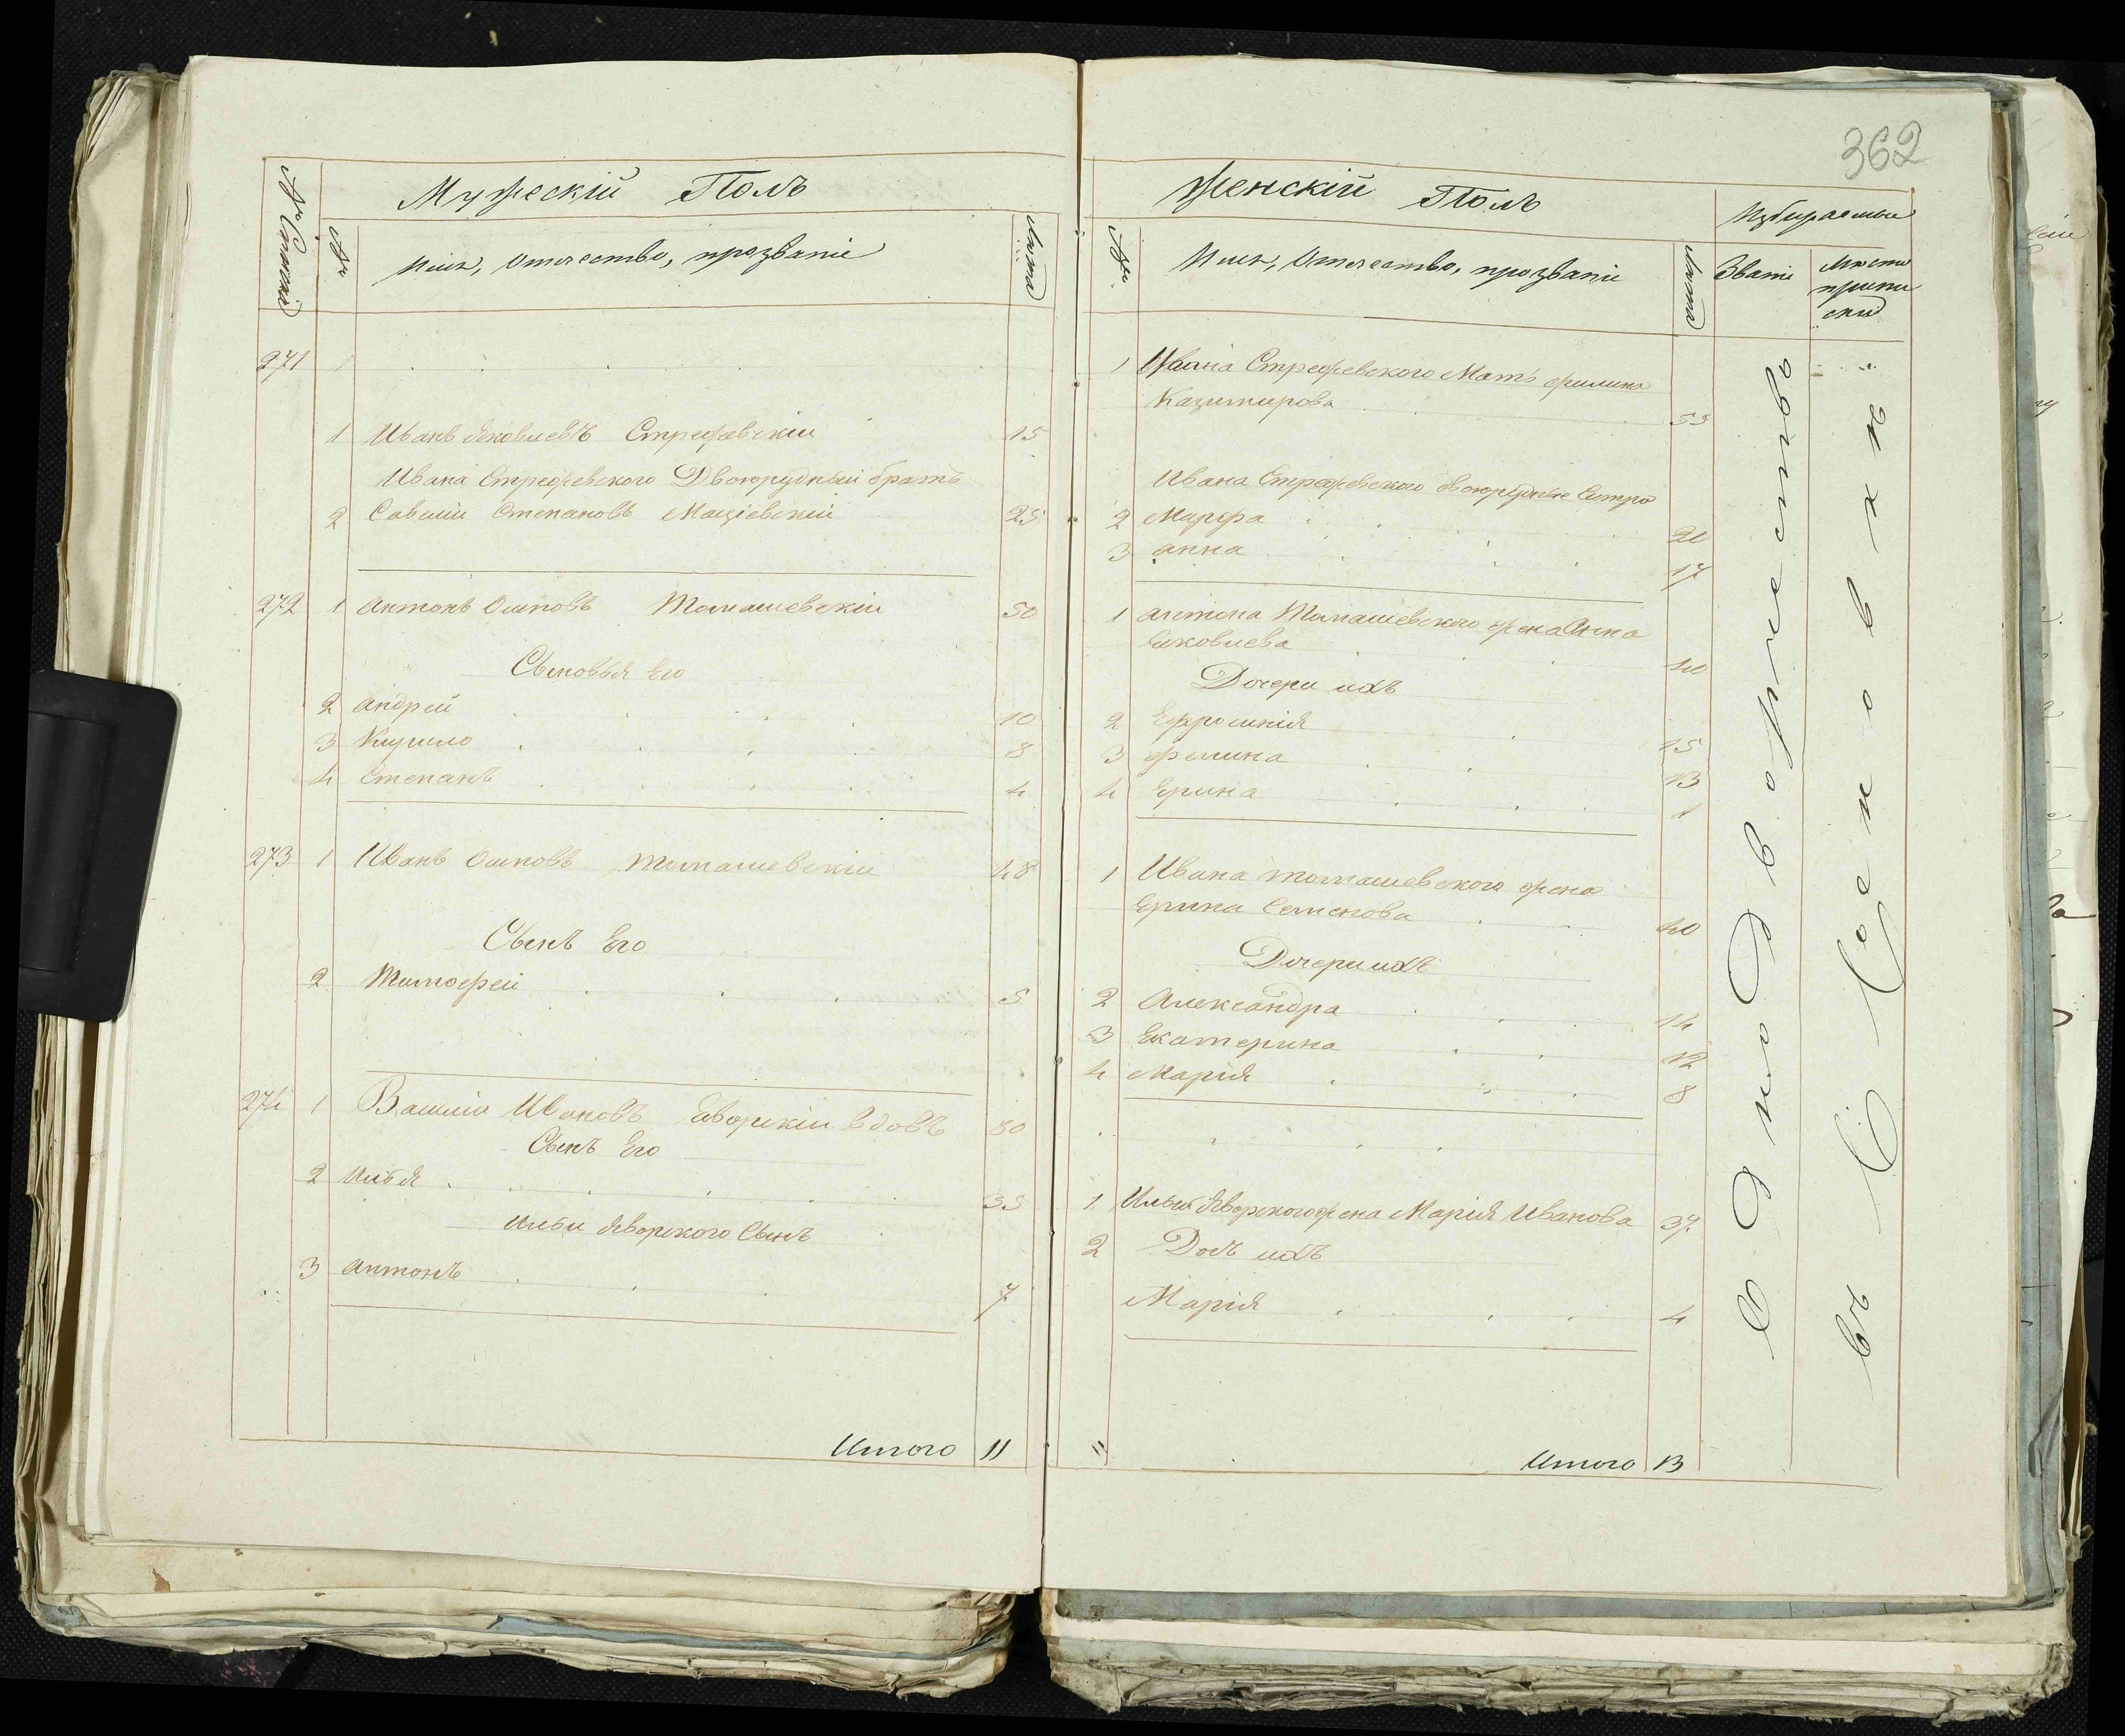 362
Мужескій Полъ
№ Статей
№
Имя, Отчество, прозваніе
Лѣта
271 1
1 Иванъ Яковлевъ Стрежевскіи 15
Ивана Стрежевского Двоюрудный братъ
2 Савелій Степановъ Маціевскій 25
272 1 Антонъ Осиповъ Томашевскіи 50
Сыновья Его
2 Андрей 10
3 Кирило 8
4 Степанъ 4
273 1 Иванъ Осиповъ Томашевскіи 48
Сынъ Его
2 Тимофей 5
274 1 Василіи Ивановъ Яворскіи вдовъ 80
Сынъ Его
2 Илья 35
Ильи Яворского Сынъ
3 Антонъ 7
Итого 11
Женскій Полъ
Избираемыи
№
Имя, Отчество, прозваніе
Лѣта
Званіе
Мѣсто
припи
ски
1 Ивана Стрежевского Мать Филина
Казимирова 55
Ивана Стрежевского двоюрудные Сестры
2 Марфа 20
3 Анна 17
1 Антона Томашевского жена Анна
Яковлева 40
Дочери ихъ
2 Ефросинія 15
3 Фелина 13
4 Ерина 1
1 Ивана Томашевского жена
Ерина Семенова 40
Дочери ихъ
2 Александра 14
3 Екатерина 12
4 Марія 8
1 Ильи Яворского жена Марія Иванова 37
2 Дочь ихъ
Марія 4
11
Итого 13
въ Однодворчество